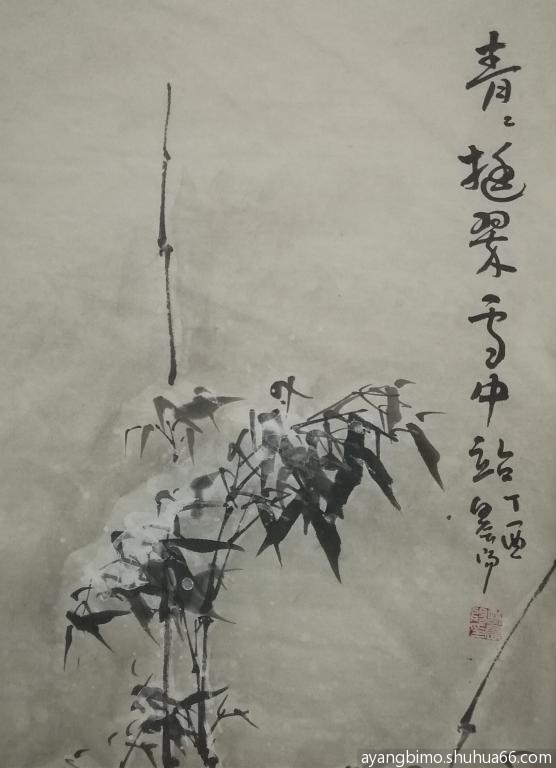 青〻挺翠雪中站
丁酉
ayangbimo.shuhua66.com